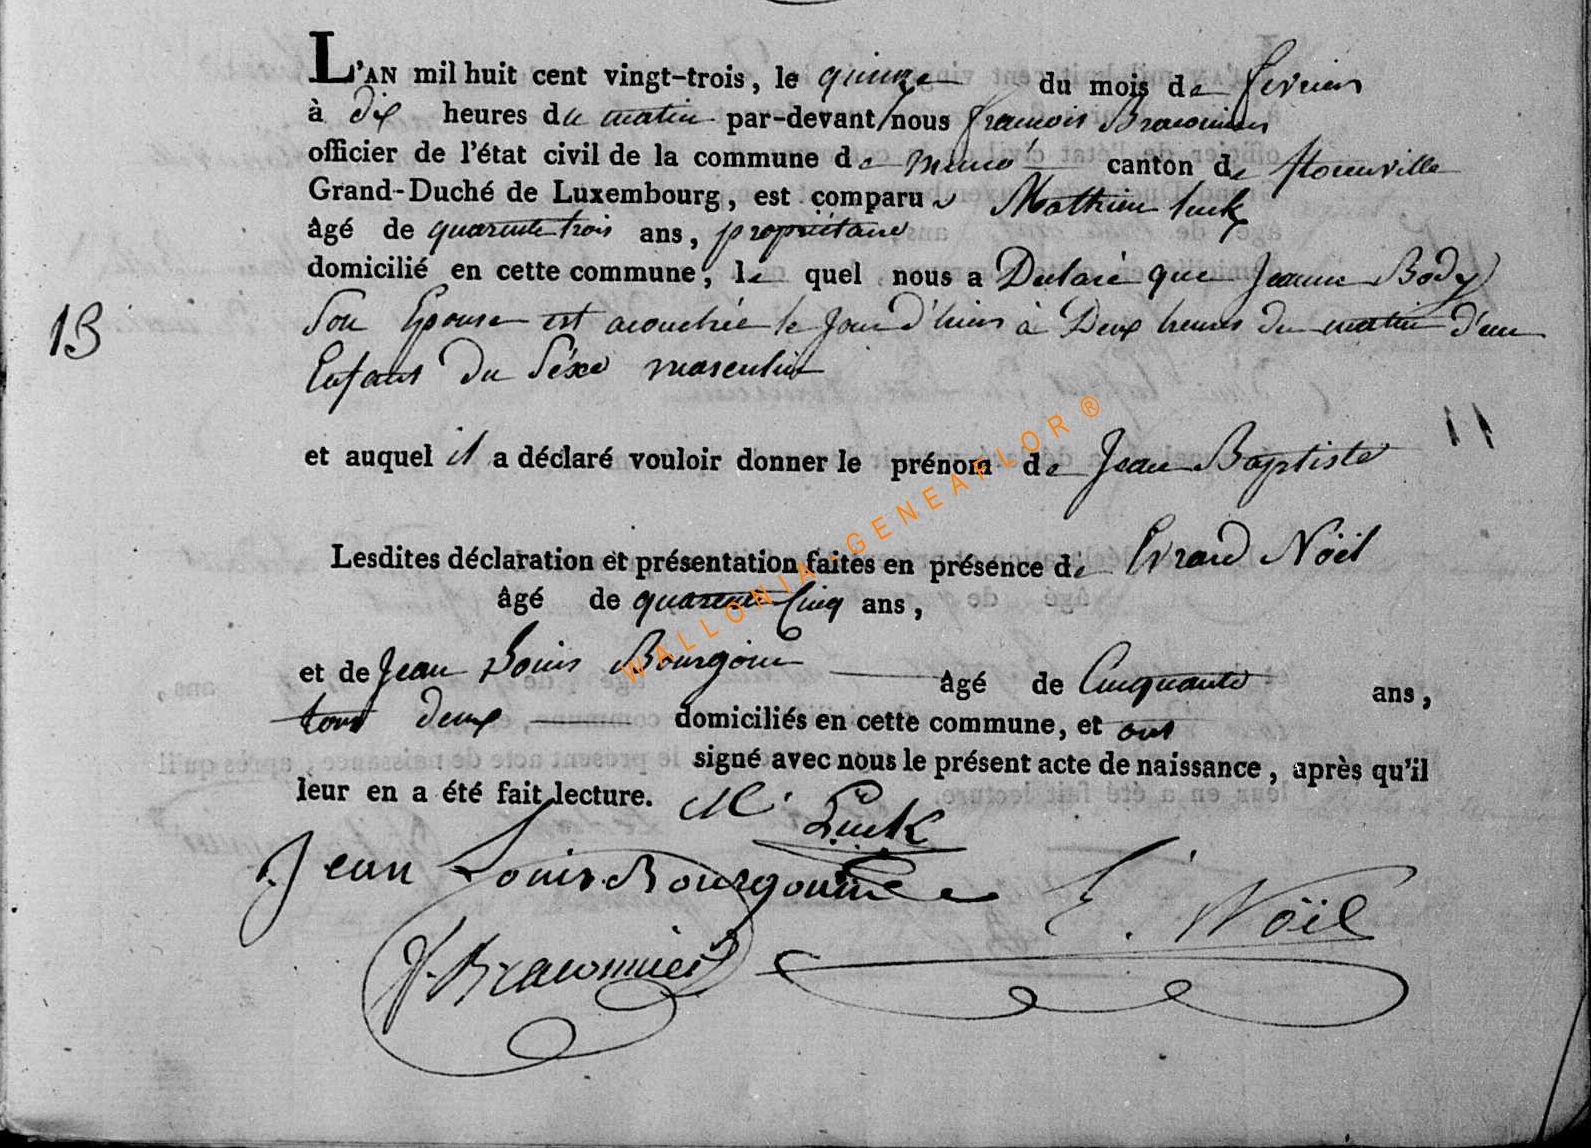 L'AN mil huit cent vingt-trois, le quinze du mois de fevrier
à dix heures du matin par-devant nous françois Braconnier
officier de l'état civil de la commune de muno canton de florenville
Grand-Duché de Luxembourg, est comparu Mathieu luck
âgé de quarente trois ans, propriétaire
domicilié en cette commune, le quel nous a Declaré que Jeanne Body
13
Son Epouse est acouchée le Jour d'hier à Deux heures du matin d'un
Enfant Du Séxe masculin
et auquel il a déclaré vouloir donner le prénom de Jean Baptiste
Lesdites déclaration et présentation faites en présence de Evrard Nöèl
âgé de quarente Cinq ans,
et de Jean Louis Bourgoin âgé de Cinquante ans,
tous deux domiciliés en cette commune, et ont
signé avec nous le présent acte de naissance, après qu'il
leur en a été fait lecture. M. Luck
Jean Louis Bourgouin
E. Nöèl
f. Braconnier
WALLONIA-GENEAFLOR ®